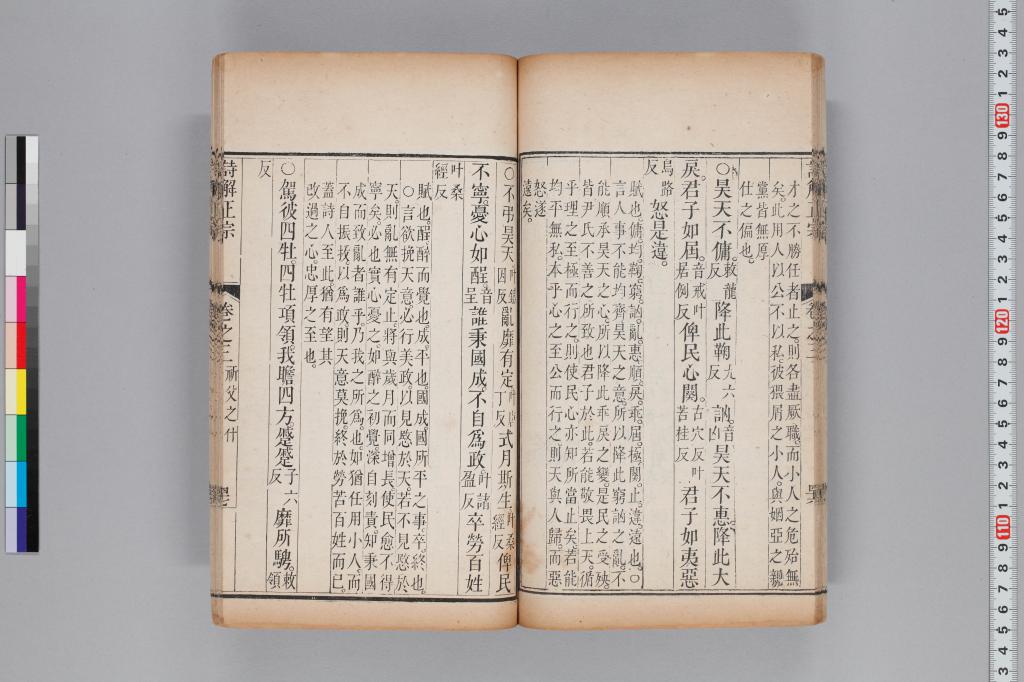 才之不勝任者止之則各盡厥職而小人之危殆無
矣此用人以公不以私彼猥屑之小人與姻亞之親
黨皆無厚
仕之偏也
○昊天不傭敕龍反降此鞠九六反訩音凶昊天不惠降此大
戾君子如屆音戒叶居例反俾民心闋古穴反叶苦桂反君子如夷惡
烏路反怒是違
賦也傭均鞠窮訩亂惠順戾乖屆極闋止違遠也○
言人事不能均齊昊天之意所以降此窮訩之亂不
能順承昊天之心所以降此乖戾之變是民之受殃
皆尹氏不善之所致也君子於此若能敬畏上天循
乎理之至極而行之則使民心亦知所當止矣若能
均平無私本乎心之至公而行之則天與人歸而惡
怒遂
遠矣
○不弔昊天叶鐵因反亂靡有定叶唐丁反式月斯生叶桑經反俾民
不寧憂心如酲音呈誰秉國成不自爲政叶諸盈反卒勞百姓
叶桑經反
賦也酲醉而覺也成平也國成國所平之事卒終也
○言欲挽天意必行美政以見愍於天若不見愍於
天則亂無有定止將與歲月而同增長使民愈不得
寧矣必也實心憂之如醉之初覺深自刻責知秉國
成而致亂者誰乎乃我之所爲也如猶任用小人而
不自振拔以爲政則天意莫挽終於勞苦百姓而已
蓋詩人至此猶有望其
改過之心忠厚之至也
○駕彼四牡四牡項領我瞻四方蹙蹙子六反靡所騁敕領
反
詩解正宗
卷之三
祈父之什
130
120
110